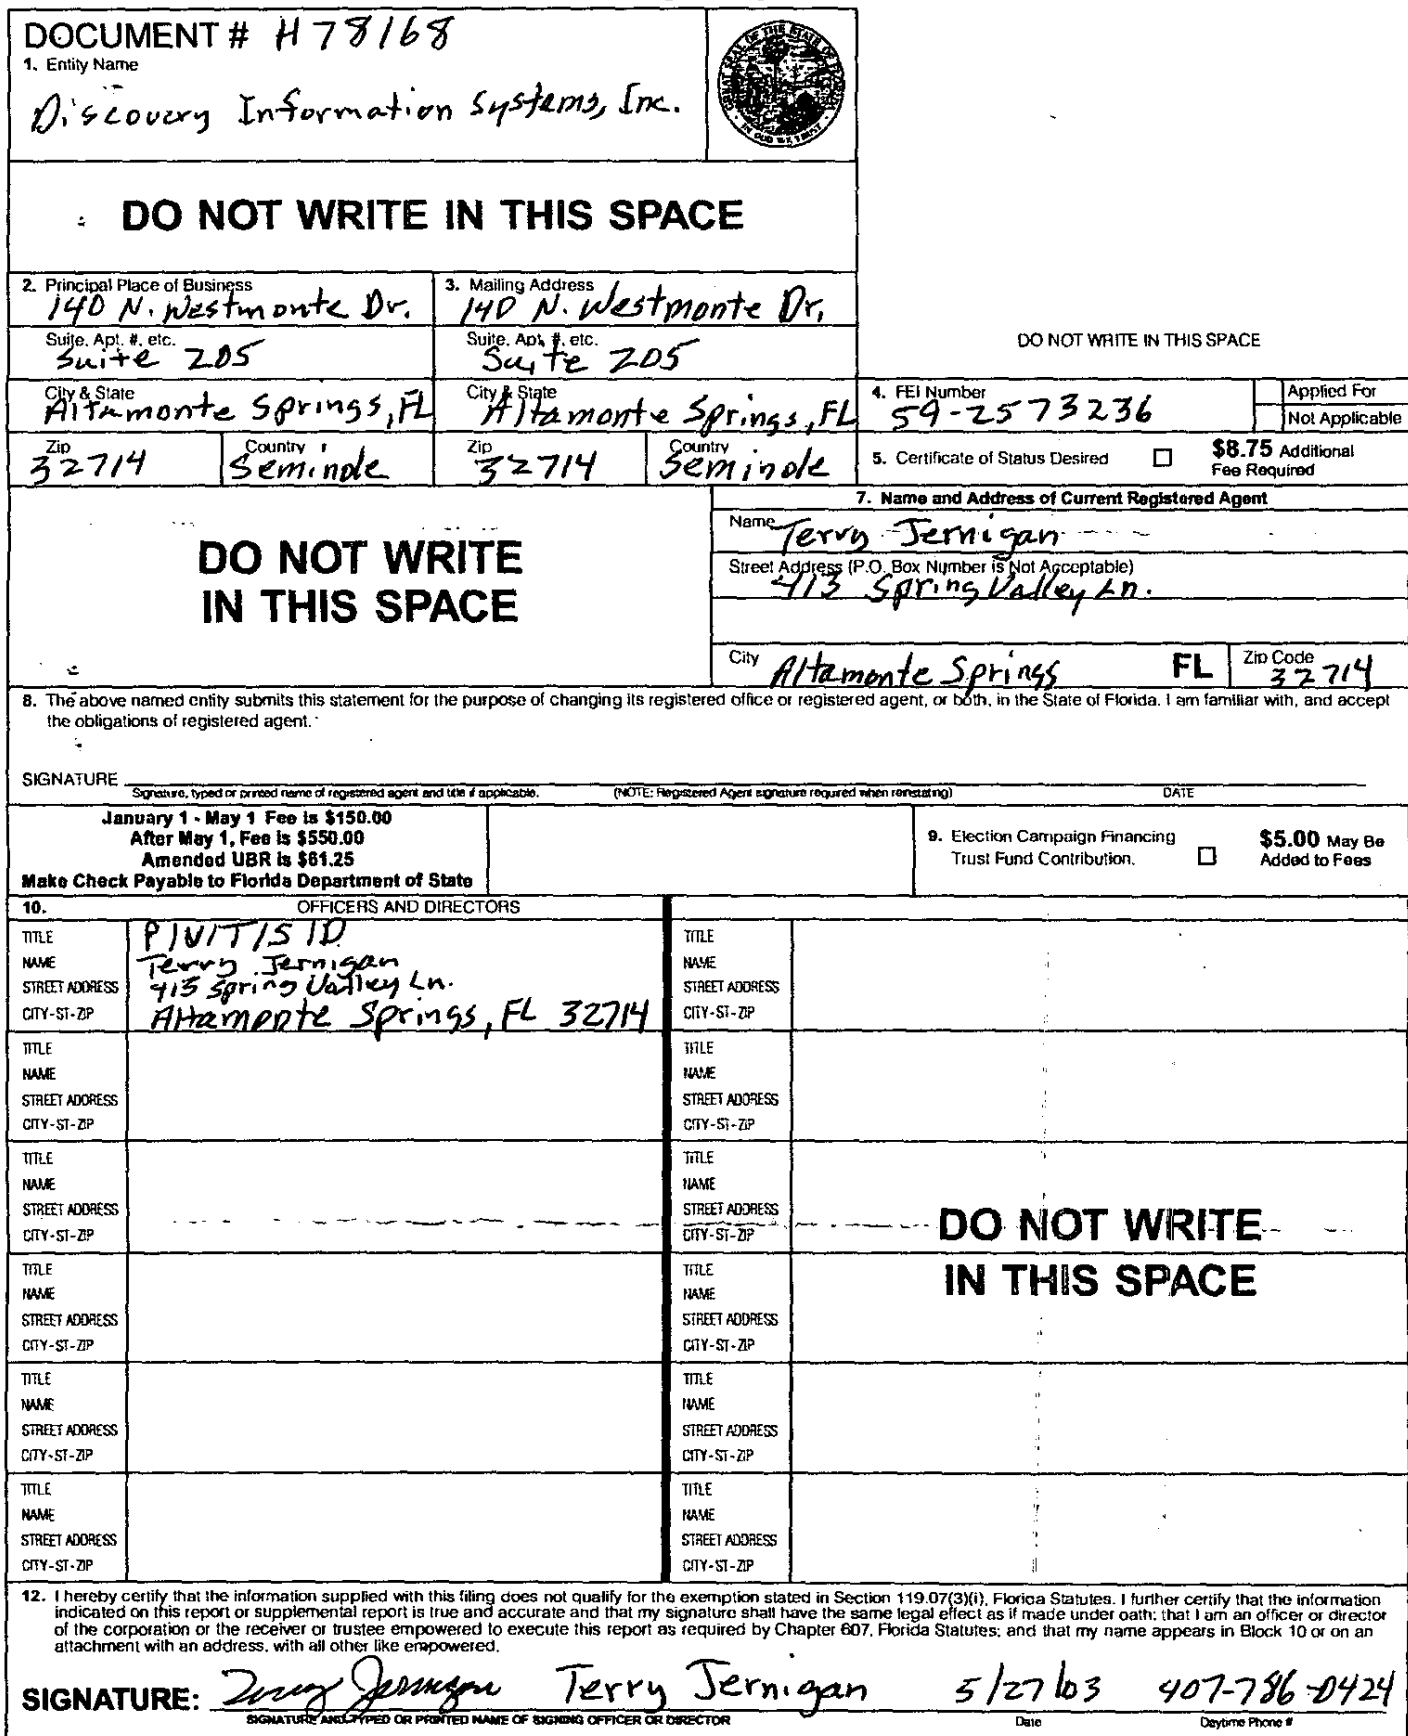 DOCUMENT # H78168
1. Entity Name
Discovery Information Systems, Inc.
DO NOT WRITE IN THIS SPACE
2. Principal Place of Business
140 N. Westmonte Dr.
3. Mailing Address
140 N. Westmonte Dr.
Suite, Apt. #, etc.
Suite 205
Suite, Apt. #, etc.
Suite 205
DO NOT WRITE IN THIS SPACE
City & State
Altamonte Springs, FL
City & State
Altamonte Springs, FL
4. FEI Number
59-2573236
Applied For
Not Applicable
Zip
32714
Country
Seminole
Zip
32714
Country
Seminole
5. Certificate of Status Desired
$8.75 Additional
Fee Required
DO NOT WRITE
IN THIS SPACE
7. Name and Address of Current Registered Agent
Name
Terry Jernigan
Street Address (P.O. Box Number is Not Acceptable)
413 Spring Valley Ln.
City Altamonte Springs FL
Zip Code
32714
8. The above named entity submits this statement for the purpose of changing its registered office or registered agent, or both, in the State of Florida. I am familiar with, and accept
the obligations of registered agent.
SIGNATURE
Signature, typed or printed name of registered agent and title if applicable. (NOTE: Registered Agent signature required when reinstating) DATE
January 1 - May 1 Fee is $150.00
After May 1, Fee is $550.00
Amended UBR is $61.25
Make Check Payable to Florida Department of State
9. Election Campaign Financing
Trust Fund Contribution.
$5.00 May Be
Added to Fees
10. OFFICERS AND DIRECTORS
TITLE P/V/T/S/D
NAME Terry Jernigan
STREET ADDRESS 413 Spring Valley Ln.
CITY-ST-ZIP Altamonte Springs, FL 32714
TITLE
NAME
STREET ADDRESS
CITY-ST-ZIP
TITLE
NAME
STREET ADDRESS
CITY-ST-ZIP
TITLE
NAME
STREET ADDRESS
CITY-ST-ZIP
TITLE
NAME
STREET ADDRESS
CITY-ST-ZIP
TITLE
NAME
STREET ADDRESS
CITY-ST-ZIP
TITLE
NAME
STREET ADDRESS
CITY-ST-ZIP
TITLE
NAME
STREET ADDRESS
CITY-ST-ZIP
TITLE
NAME
STREET ADDRESS
CITY-ST-ZIP
TITLE
NAME
STREET ADDRESS
CITY-ST-ZIP
TITLE
NAME
STREET ADDRESS
CITY-ST-ZIP
TITLE
NAME
STREET ADDRESS
CITY-ST-ZIP
DO NOT WRITE
IN THIS SPACE
12. I hereby certify that the information supplied with this filing does not qualify for the exemption stated in Section 119.07(3)(i), Florida Statutes. I further certify that the information
indicated on this report or supplemental report is true and accurate and that my signature shall have the same legal effect as if made under oath; that I am an officer or director
of the corporation or the receiver or trustee empowered to execute this report as required by Chapter 607, Florida Statutes; and that my name appears in Block 10 or on an
attachment with an address, with all other like empowered.
SIGNATURE: Terry Jernigan Terry Jernigan 5/27/03 407-786-0424
SIGNATURE AND TYPED OR PRINTED NAME OF SIGNING OFFICER OR DIRECTOR Date Daytime Phone #